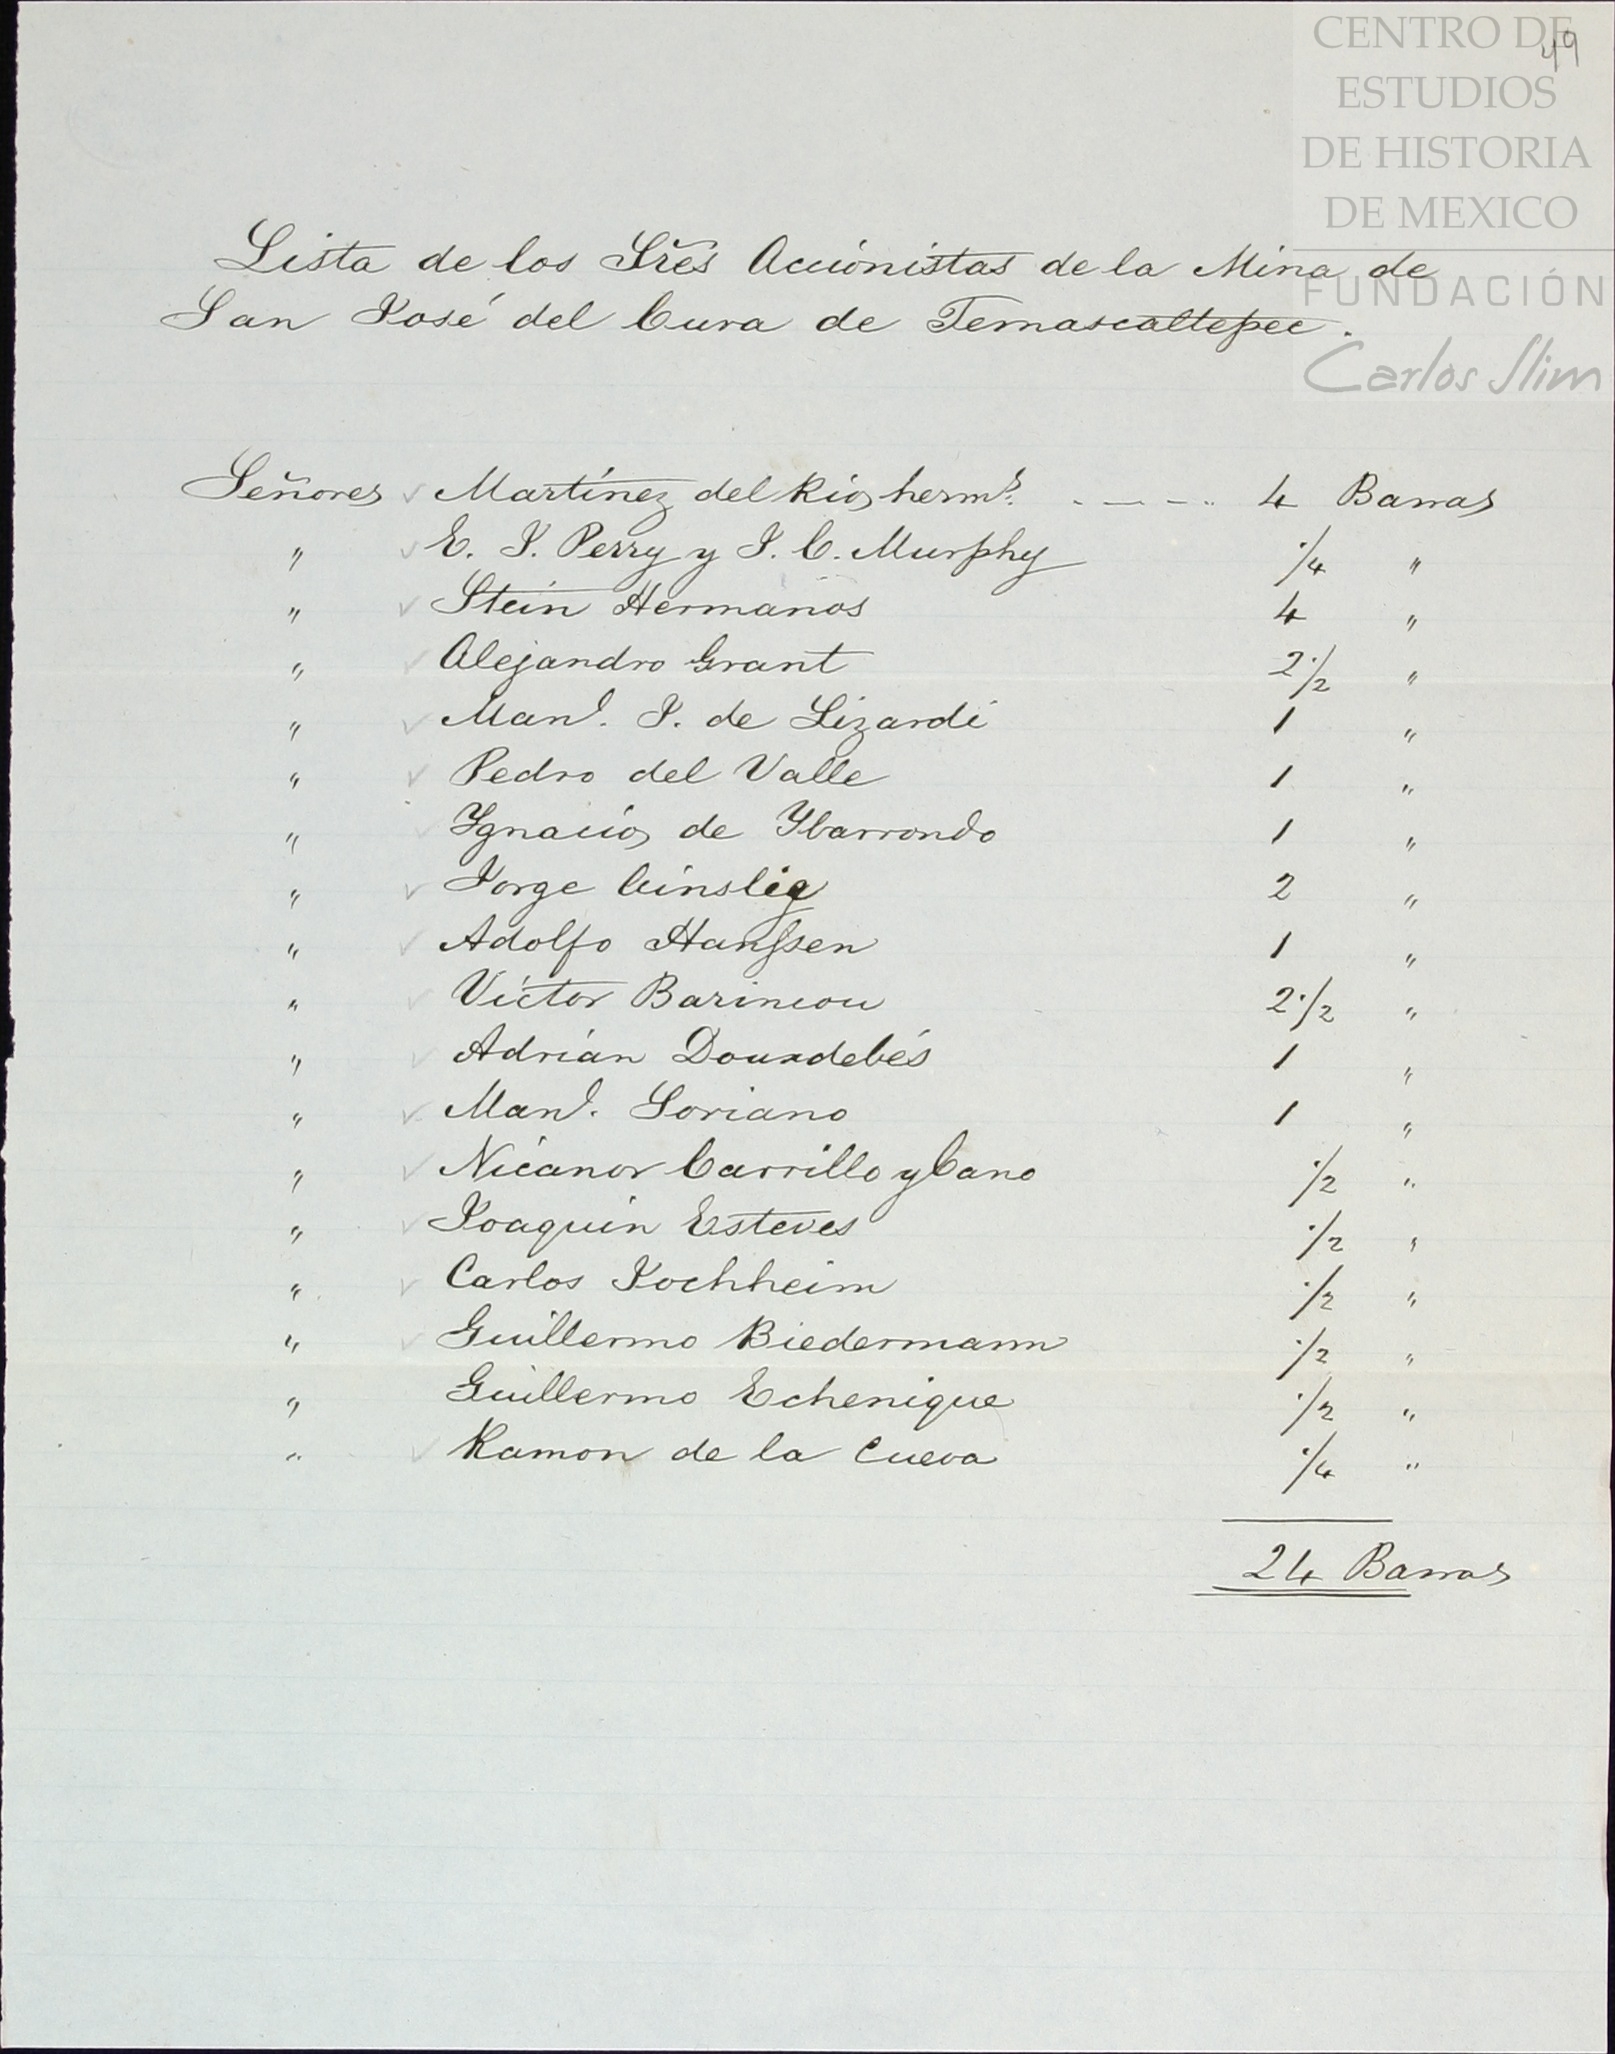 CENTRO DE
ESTUDIOS
DE HISTORIA
DE MEXICO
FUNDACIÓN
Carlos Slim
49
Lista de los Sres Accionistas de la Mina de
San José del Cura de Temascaltepec.
Señores Martínez del Rio hermˢ. 4 Barras
" E. J. Perry y J. C. Murphy 1/4 "
" Stein Hermanos 4 "
" Alejandro Grant 2 1/2 "
" Manˡ. J. de Lizardi 1 "
" Pedro del Valle 1 "
" Ygnacio de Ybarrondo 1 "
" Jorge 2 "
" Adolfo Hanssen 1 "
" Victor Barincou 2 1/2 "
" Adrián Dourdebés 1 "
" Manˡ. Soriano 1 "
" Nicanor Carrillo y Cano 1/2 "
" Joaquin Esteves 1/2 "
" Carlos Jochheim 1/2 "
" Guillermo Biedermann 1/2 "
" Guillermo Echenique 1/2 "
" Ramon de la Cueva 1/4 "
24 Barras